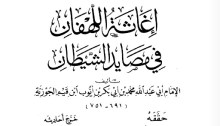 إغاثة اللهفان
في مصايد الشيطان
تأليف
الإمام أبي عبد الله محمد بن أبي بكر بن أيوب ابن قيم الجوزية
(٦٩١ - ٧٥١)
حققه
خرج أحاديثه